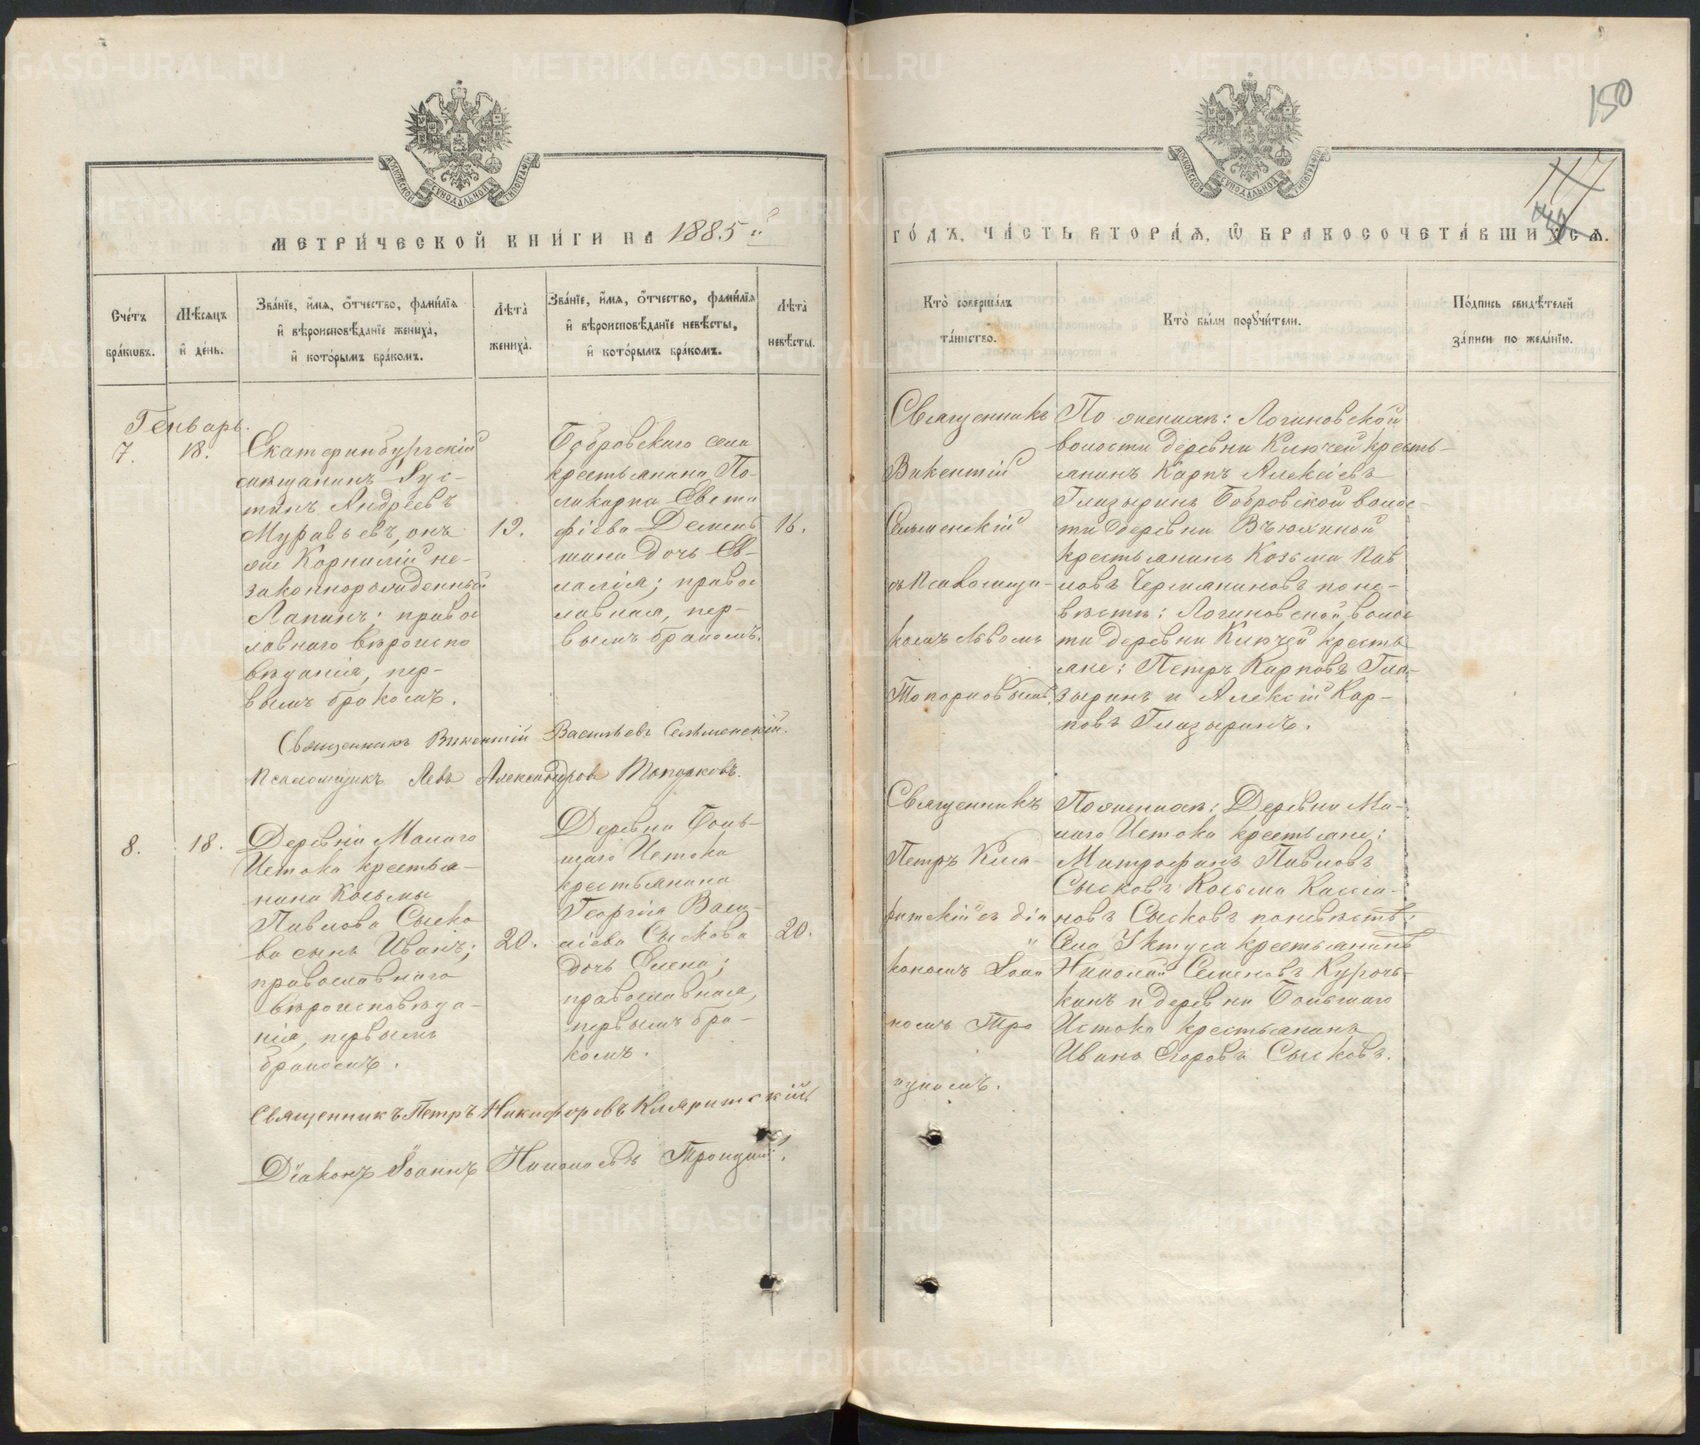 150
117
МОСКОВСКОЙ СУНОДАЛЬНОЙ ТИПОГРАФІИ
МОСКОВСКОЙ СУНОДАЛЬНОЙ ТИПОГРАФІИ
МЕТРИ́ЧЕСКОЙ КНИ́ГИ НА 1885 й
ГО́ДЪ, ЧА́СТЬ ВТОРА́Я, Ѡ БРАКОСОЧЕТА́ВШИХСЯ.
Сче́тъ бра́кѡвъ.
Мѣ́сяцъ и҆ де́нь.
Зва́нїе, и҆́мя, ѻ҆́тчество, фами́лїя
и҆ вѣроисповѣ́данїе жениха̀,
и҆ кото́рымъ бра́комъ.
Лѣ́та̀ жениха̀.
Зва́нїе, и҆́мя, ѻ҆́тчество, фами́лїя
и҆ вѣроисповѣ́данїе невѣ́сты,
и҆ кото́рымъ бра́комъ.
Лѣ́та̀ невѣ́сты.
Кто̀ соверша́лъ
та́инство.
Кто̀ бы́ли порꙋчи́тели.
По́дпись свидѣ́телей
за́писи по жела́нїю.
Генварь.
7.
18.
Екатеринбургскій
мѣщанинъ Іус-
тинъ Андреевъ
Муравьевъ, онъ
же Корнилій не-
законнорожденный
Лапинъ; правос
лавнаго вѣроиспо
вѣданія, пер-
вымъ бракомъ.
19.
Бобровскаго села
крестьянина По-
ликарпа Евсти
фіева Демень
шина дочь Ев-
лалія; правос
лавная, пер-
вымъ бракомъ.
16.
Священникъ
Викентій
Селменскій
съ Псаломщи-
комъ Львомъ
Топорковымъ.
По женихѣ: Логиновской
волости деревни Ключей кресть-
янинъ Карпъ Алексіевъ
Глазыринъ Бобровской волос-
ти деревни Вьюхиной
крестьянинъ Козьма Пав
ловъ Чермяниновъ по не-
вѣстѣ: Логиновской волос
ти деревни Ключей кресть
яне: Петръ Карповъ Гла-
зыринъ и Алексій Кар-
повъ Глазыринъ.
Священникъ Викентій Васильевъ Селменскій.
Псаломщикъ Левъ Александровъ Топорковъ.
8.
18.
Деревни Малаго
Истока крестья-
нина Козьмы
Павлова Сыско
ва сынъ Иванъ;
православнаго
вѣроисповѣда-
нія, первымъ
бракомъ.
20.
Деревни Боль-
шаго Истока
крестьянина
Георгія Васи-
ліева Сыскова
дочь Елена;
православная,
первымъ бра-
комъ.
20.
Священникъ
Петръ Кла-
ритскій съ діа
кономъ Іоан
номъ Тро
ицкимъ.
По женихѣ: Деревни Ма-
лаго Истока крестьяне:
Митрофанъ Павловъ
Сысковъ Козьма Кассіа-
новъ Сысковъ по невѣстѣ:
Села Уктуса крестьянинъ
Николай Семеновъ Куроч-
кинъ и деревни Большаго
Истока крестьянинъ
Иванъ Егоровъ Сысковъ.
Священникъ Петръ Никифоровъ Кларитскій
Діаконъ Іоаннъ Николаевъ Троицкій.